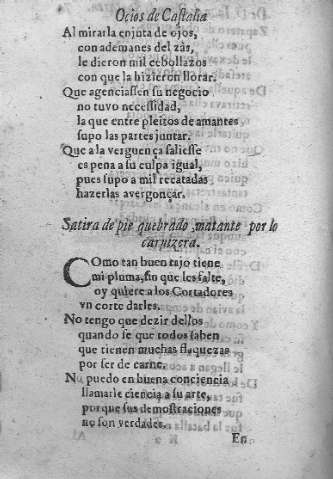 Ocios de Castalia
Al mirarla enjuta de ojos,
con ademanes del zas,
le dieron mil cebollazos
con que la hizieron llorar.
Que agenciassen su negocio
no tuvo necessidad,
la que entre pleitos de amantes
supo las partes juntar.
Que a la verguença saliesse
es pena a su culpa igual,
pues supo a mil recatadas
hazerlas avergonçar.
Satira de pie quebrado, matante por lo
carnizera.
COmo tan buen tajo tiene
mi pluma, sin que les falte,
oy quiere a los Cortadores
vn corte darles.
No tengo que dezir dellos
quando se que todos saben
que tienen muchas flaquezas
por ser de carne.
No puedo en buena conciencia
llamarle ciencia a su arte,
porque sus demostraciones
no son verdades.
En